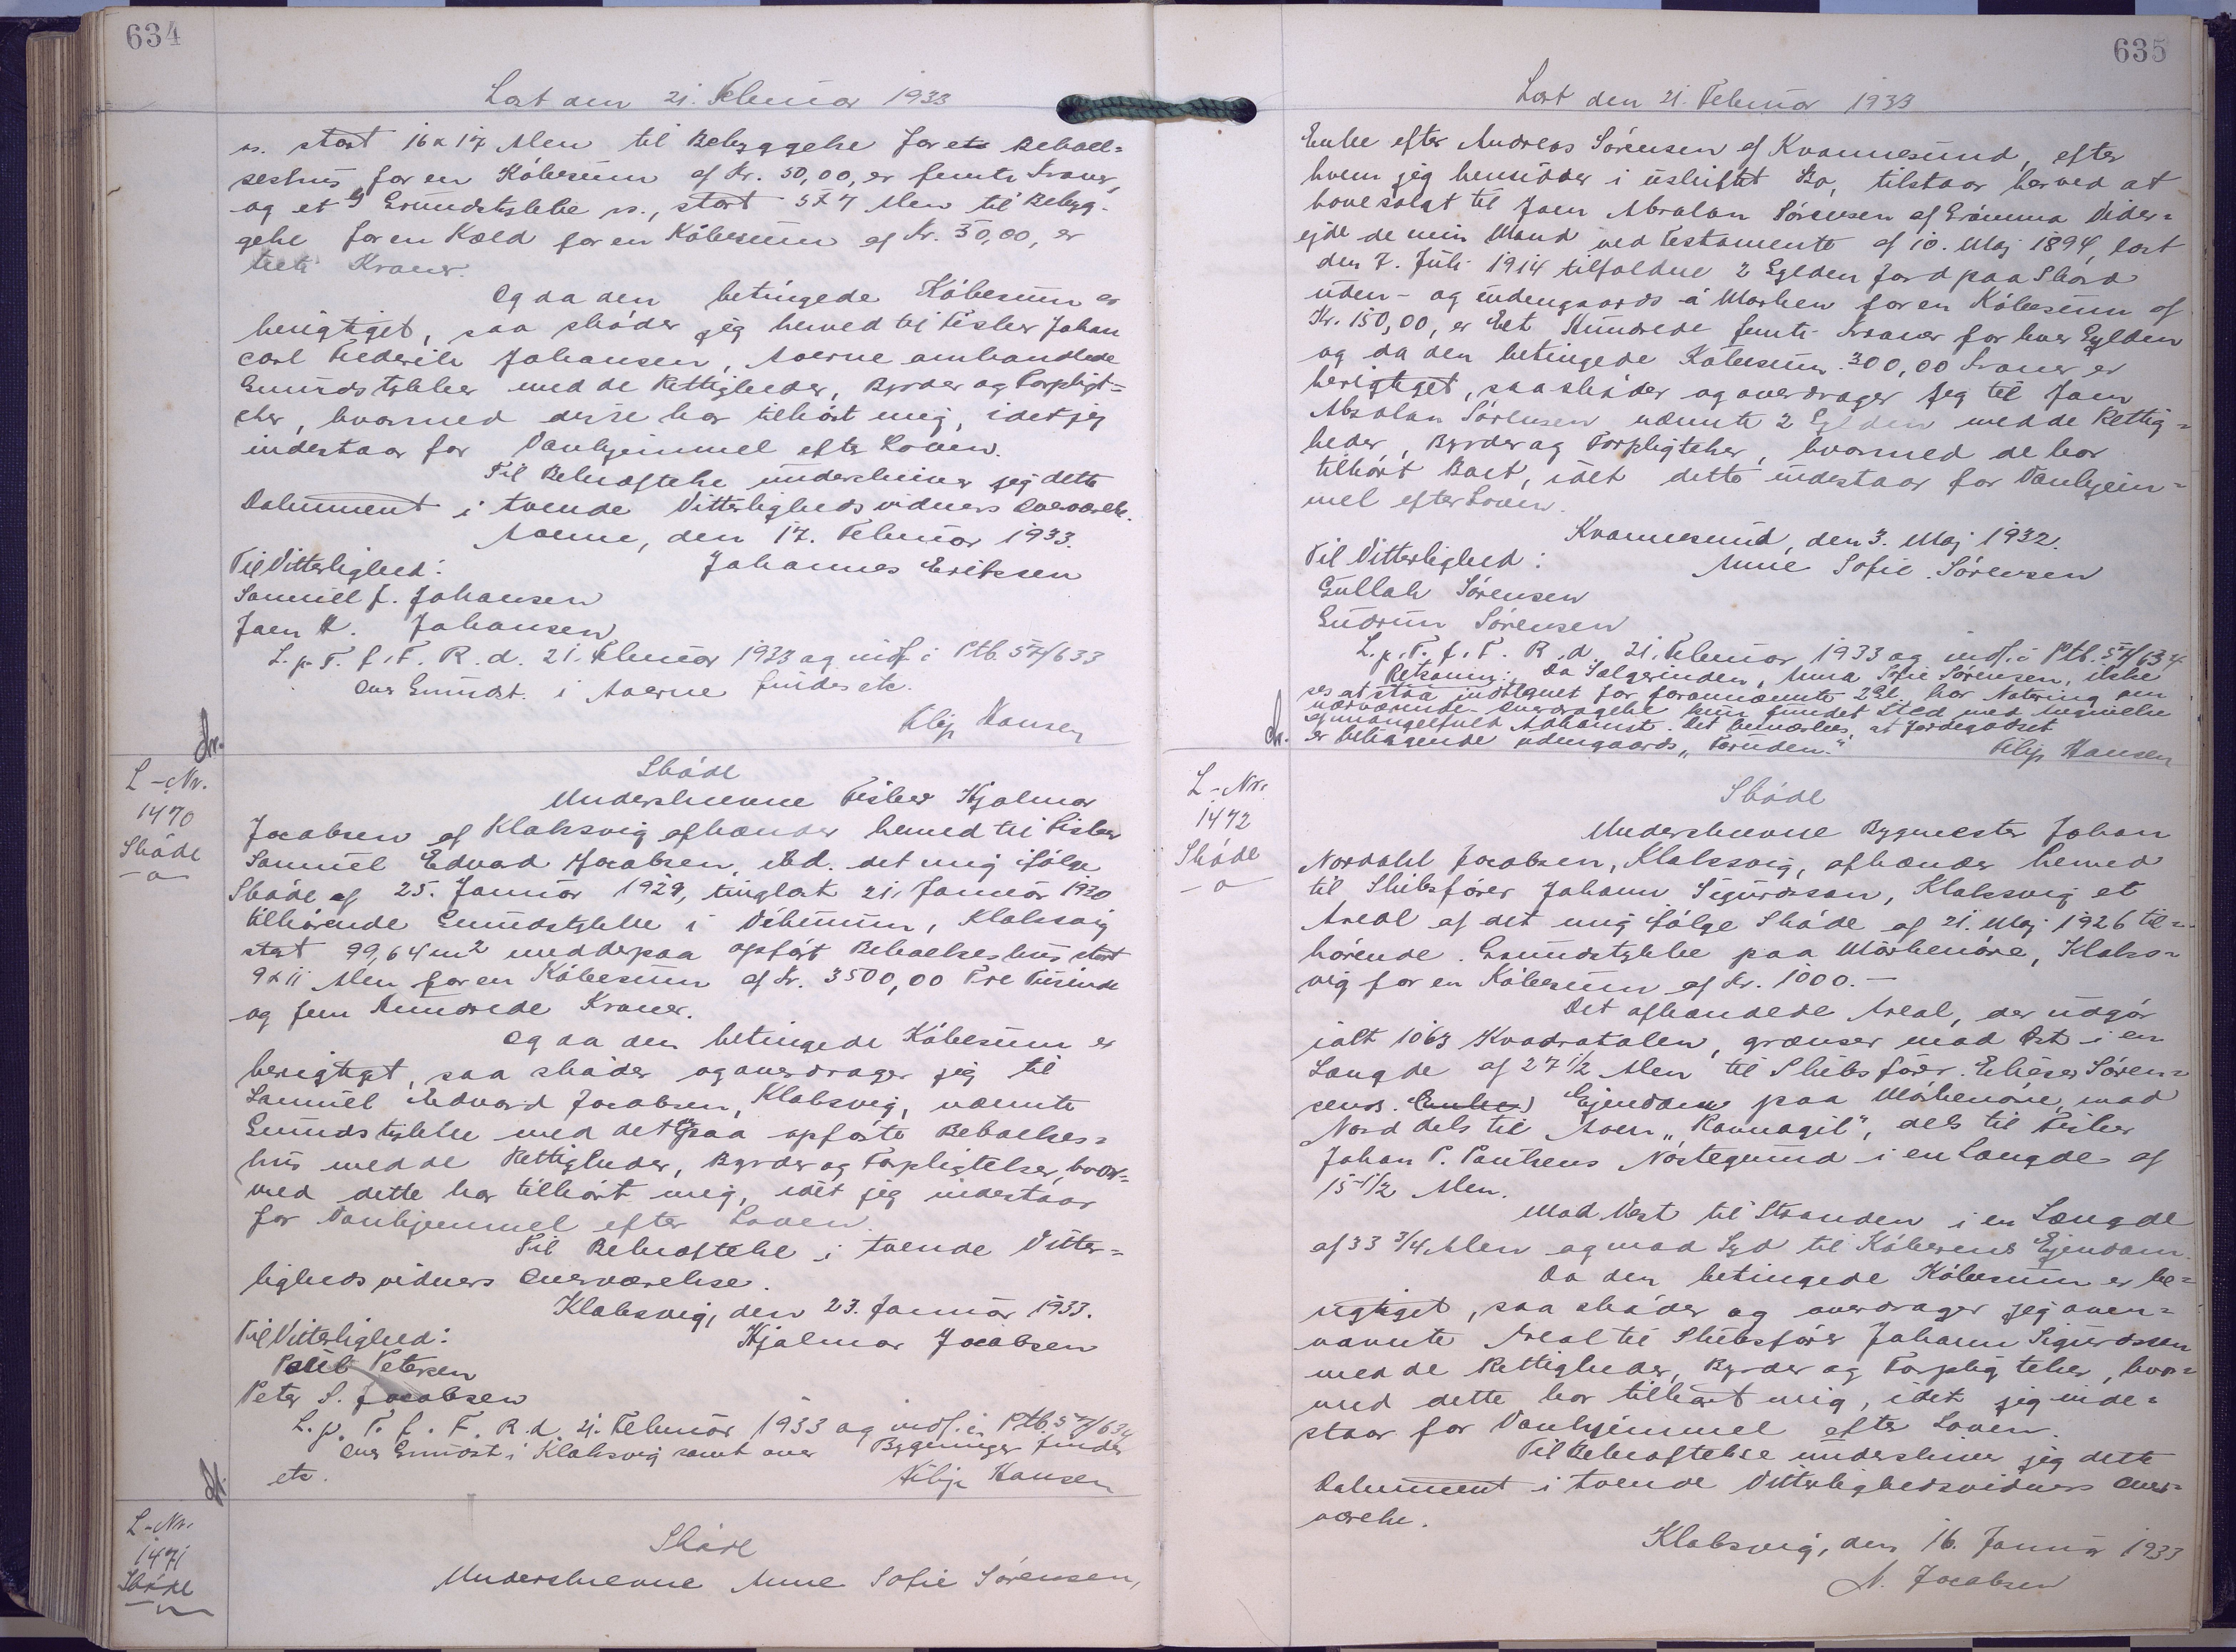 634
Læst den 21. Februar 1933
ns. stort 16 x 17 Alen til Bebyggelse for et Beboel=
seshus for en Købesum af Kr. 50,00, er femti Kroner,
og et Grundstykke ns., stort 5 x 7 Alen til Bebyg-
gelse for en Kæld for en Købesum af Kr. 30,00, er
treti Kroner.
Og da den betingede Købesum er
berigtiget, saa skøder jeg herved til Fisker Johan
Carl Frederik Johansen, Aoerne omhandlede
Grundstykker med de Rettigheder, Byrder og Forpligt=
elser, hvormed disse har tilhørt mig, idet jeg
indestaar for Vanhjemmel efter Loven.
Til Bekræftelse underskriver jeg dette
Dokument i tvende Vitterlighedsvidners Overværelse.
Aoerne, den 17. Februar 1933.
Til Vitterlighed: Johannes Eriksen
Samuel J. Johansen
Joen K. Johansen
L. p. T. f. F. R. d. 21. Februar 1933 og indf. i Ptb. 57/633
Over Grundst. i Aoerne findes etc.
Filip Hansen
L-Nr.
1470
Skøde
Skøde
Underskrevne Fisker Hjalmar
Jacobsen af Klaksvig afhænder herved til Fisker
Samuel Edvard Jacobsen, ibd. det mig ifølge
Skøde af 25. Januar 1929, tinglæst 21. Januar 1930
tilhørende Grundstykke i Vikunum, Klaksvig
stort 99,64 m2 med derpaa opført Beboelseshus stort
9 x 11 Alen for en Købesum af Kr. 3500,00 Tre Tusinde
og fem Hundrede Kroner.
Og da den betingede Købesum er
berigtiget, saa skøder og overdrager jeg til
Samuel Edvard Jacobsen, Klaksvig, nævnte
Grundstykke med det derpaa opførte Beboelses=
hus med de Rettigheder, Byrder og Forpligtelser, hvor=
med dette har tilhørt mig, idet jeg indestaar
for Vanhjemmel efter Loven.
Til Bekræftelse i tvende Vitter=
lighedsvidners Overværelse.
Klaksvig, den 23. Januar 1933.
Til Vitterlighed: Hjalmar Jacobsen
Poul Petersen
Peter S. Jacobsen
L. p. T. f. F. R. d. 21. Februar 1933 og indf. i Ptb. 57/634
Over Grundst i Klaksvig samt over Bygninger findes
etc. Filip Hansen
L-Nr.
1471
Skøde
Skøde
Underskrevne Anne Sofie Sørensen,
635
Læst den 21. Februar 1933
Enke efter Andreas Sørensen af Kvannesund, efter
hvem jeg hensidder i uskiftet Bo, tilstaar herved at
have solgt til Joen Absalon Sørensen af Grømma Vider=
ejde de min Mand ved Testamente af 10. Maj 1894, læst
den 7. Juli 1914 tilfaldne 2 Gylden Jord paa Skard
uden- og indengaards á Marken for en Købesum af
Kr. 150,00, er Eet Hundrede femti Kroner for hver Gylden
og da den betingede Købesum 300,00 Kroner er
berigtiget, saa skøder og overdrager jeg til Joen
Absalon Sørensen nævnte 2 Gylden med de Rettig=
heder, Byrder og Forpligtelser, hvormed de har
tilhørt Boet, idet dette indestaar for Vanhjem=
mel efter Loven.
Kvannesund, den 3. Maj 1932.
Til Vitterlighed: Anne Sofie Sørensen
Gullak Sørensen
Gudrun Sørensen
L. p. T. f. F. R. d. 21. Februar 1933 og indf. i Ptb. 57/634
Retsanm: Da Sælgerinden, Anna Sofie Sørensen, ikke
ses at staa indtegnet for forannævnte 2 Gl, har Notering om
nærværende Overdragelse kun fundet Sted med Anmærkning
af mangelfuld Adkomst. Det bemærkes, at Jordegodset
er beliggende udengaards "Foruden." Filip Hansen
L-Nr.
1472
Skøde
Skøde
Underskrevne Bygmester Johan
Nordahl Jacobsen, Klaksvig, afhænder herved
til Skibsfører Johann Sigurdsson, Klaksvig et
Areal af det mig ifølge Skøde af 21. Maj 1926 til=
hørende Grundstykke paa Mørkenøre, Klaks=
vig for en Købesum af Kr. 1000.-
Det afhændede Areal, der udgør
ialt 1063 Kvadratalen, grænser mod Øst i en
Længde af 27 1/2 Alen til Skibsfører Elieser Søren=
sens Ejendom paa Mørkenøre, mod
Nord dels til Aoen "Rannagil", dels til Fisker
Johan P. Poulsens Nøstegrund i en Længde af
15 1/2 Alen.
Mod Vest til Stranden i en Længde
af 33 3/4 Alen og mod Syd til Køberens Ejendom.
Da den betingede Købesum er be=
rigtiget, saa skøder og overdrager jeg oven=
nævnte Areal til Skibsfører Johann Sigurdsson
med de Rettigheder, Byrder og Forpligtelser, hvor=
med dette har tilhørt mig, idet jeg inde=
staar for Vanhjemmel efter Loven.
Til Bekræftelse underskriver jeg dette
Dokument i tvende Vitterlighedsvidners Over=
værelse.
Klaksvig, den 16. Januar 1933
N. Jacobsen